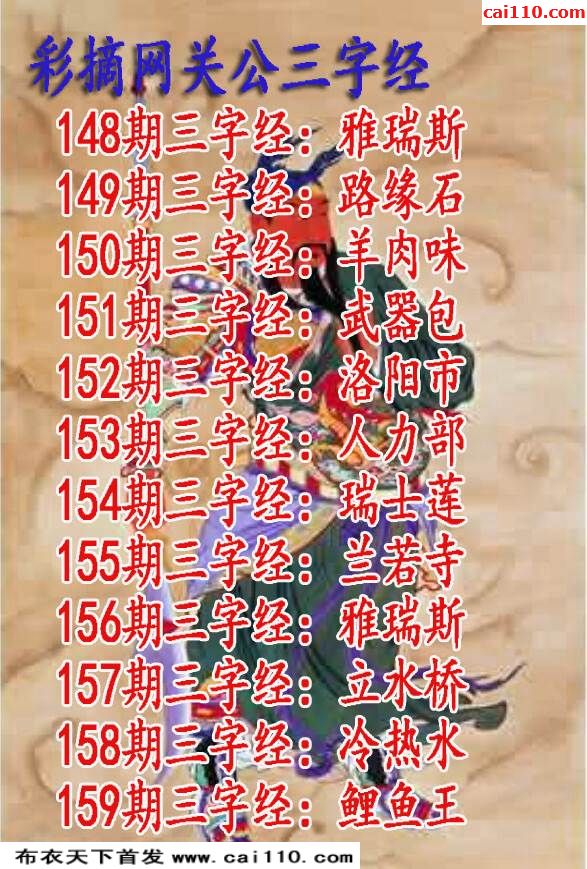 cai110.com
彩摘网关公三字经
148期三字经：雅瑞斯
149期三字经：路缘石
150期三字经：羊肉味
151期三字经：武器包
152期三字经：洛阳市
153期三字经：人力部
154期三字经：瑞士莲
155期三字经：兰若寺
156期三字经：雅瑞斯
157期三字经：立水桥
158期三字经：冷热水
159期三字经：鲤鱼王
布衣天下首发 www.cai110.com